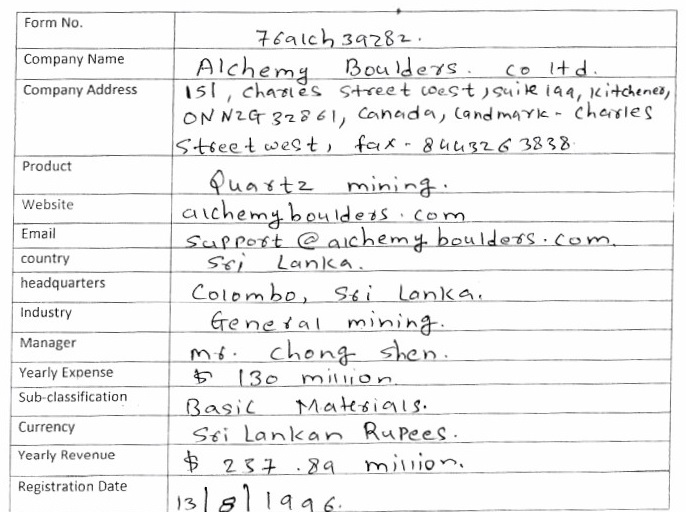 Form No. 76alch39282.
Company Name Alchemy Boulders. co ltd.
Company Address 151, Charles Street west, suite 199, Kitchener,
ON N2G 32861, Canada, Landmark - Charles
Street west, fax - 8443263838.
Product Quartz mining.
Website alchemyboulders.com
Email support@alchemyboulders.com.
country Sri Lanka.
headquarters Colombo, Sri Lanka.
Industry General mining.
Manager mr. Chong Shen.
Yearly Expense $ 130 million
Sub-classification Basic Materials.
Currency Sri Lankan Rupees.
Yearly Revenue $ 237.89 million.
Registration Date 13/8/1996.